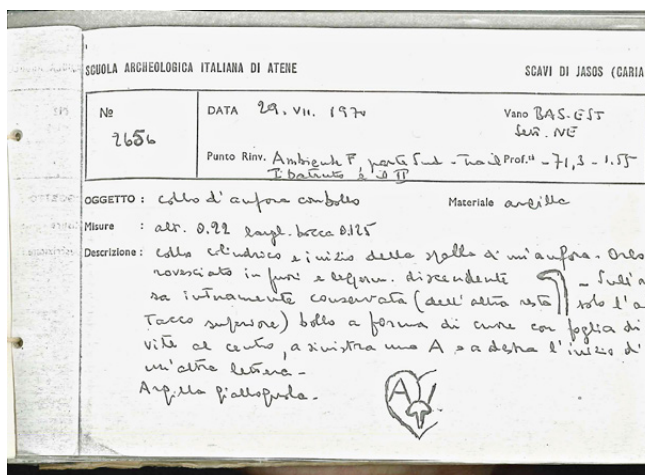 SCUOLA ARCHEOLOGICA ITALIANA DI ATENE SCAVI DI JASOS (CARIA
No 2656
DATA 29. VII. 1970
Vano BAS. EST
Sett. NE
Punto Rinv. Ambiente F, parte Sud - Tra il Prof.tà - 71,3 - 1.55
I battuto e il II
OGGETTO : collo d'anfora con bollo Materiale argilla
Misure : alt. 0.22 largh. bocca 0.125
Descrizione : collo cilindrico e inizio della spalla di un'anfora. Orlo
rovesciato in fuori e legerm. discendente - Sull'a
sa interamente conservata (dell'altra resta solo l'a
tacco superiore) bollo a forma di cuore con foglia di
vite al centro, a sinistra una A e a destra l'inizio d'
un'altra lettera -
Argilla giallognola.
A